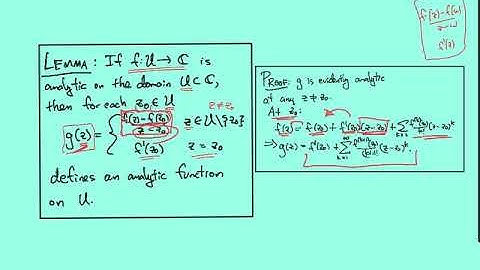 LEMMA: If f: U → C is
analytic on the domain U ⊂ C,
then for each z₀ ∈ U
z ≠ z₀
g(z) = { (f(z) - f(z₀)) / (z - z₀) z ∈ U \ {z₀}
f'(z₀) z = z₀
defines an analytic function
on U.
PROOF: g is evidently analytic
at any z ≠ z₀.
At z₀:
f(z) = f(z₀) + f'(z₀)(z - z₀) + Σ
⇒ g(z) = f'(z₀) + Σ (z - z₀)ᵏ.
f(z) - f(w)
z - w
f'(z)